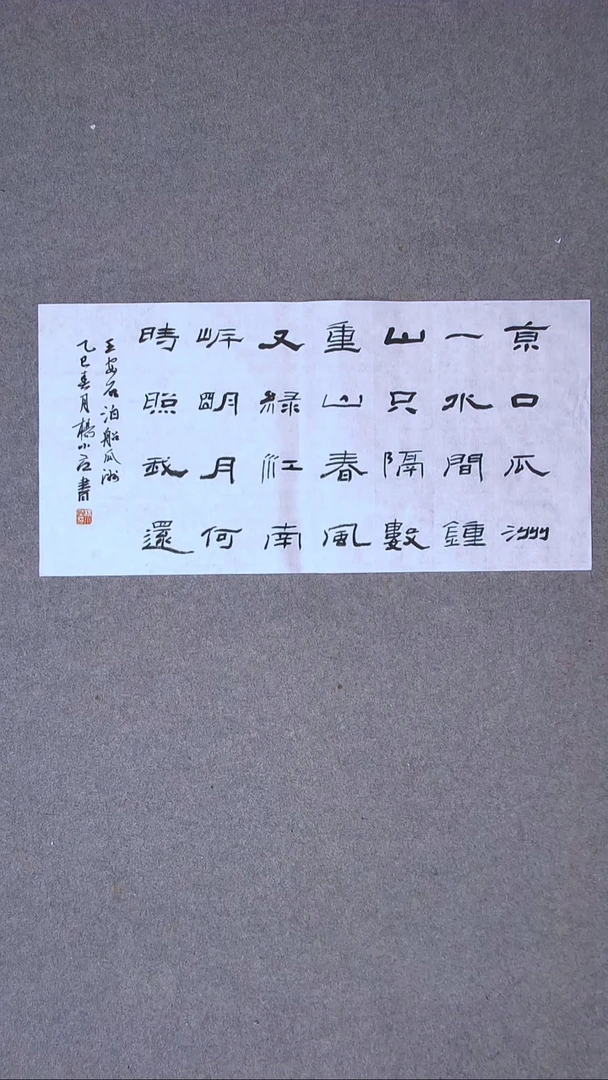 京口瓜洲
一水間鍾
山只隔數
重山春風
又綠江南
岸明月何
時照我還
王安石泊船瓜洲
乙巳春月楊小启書